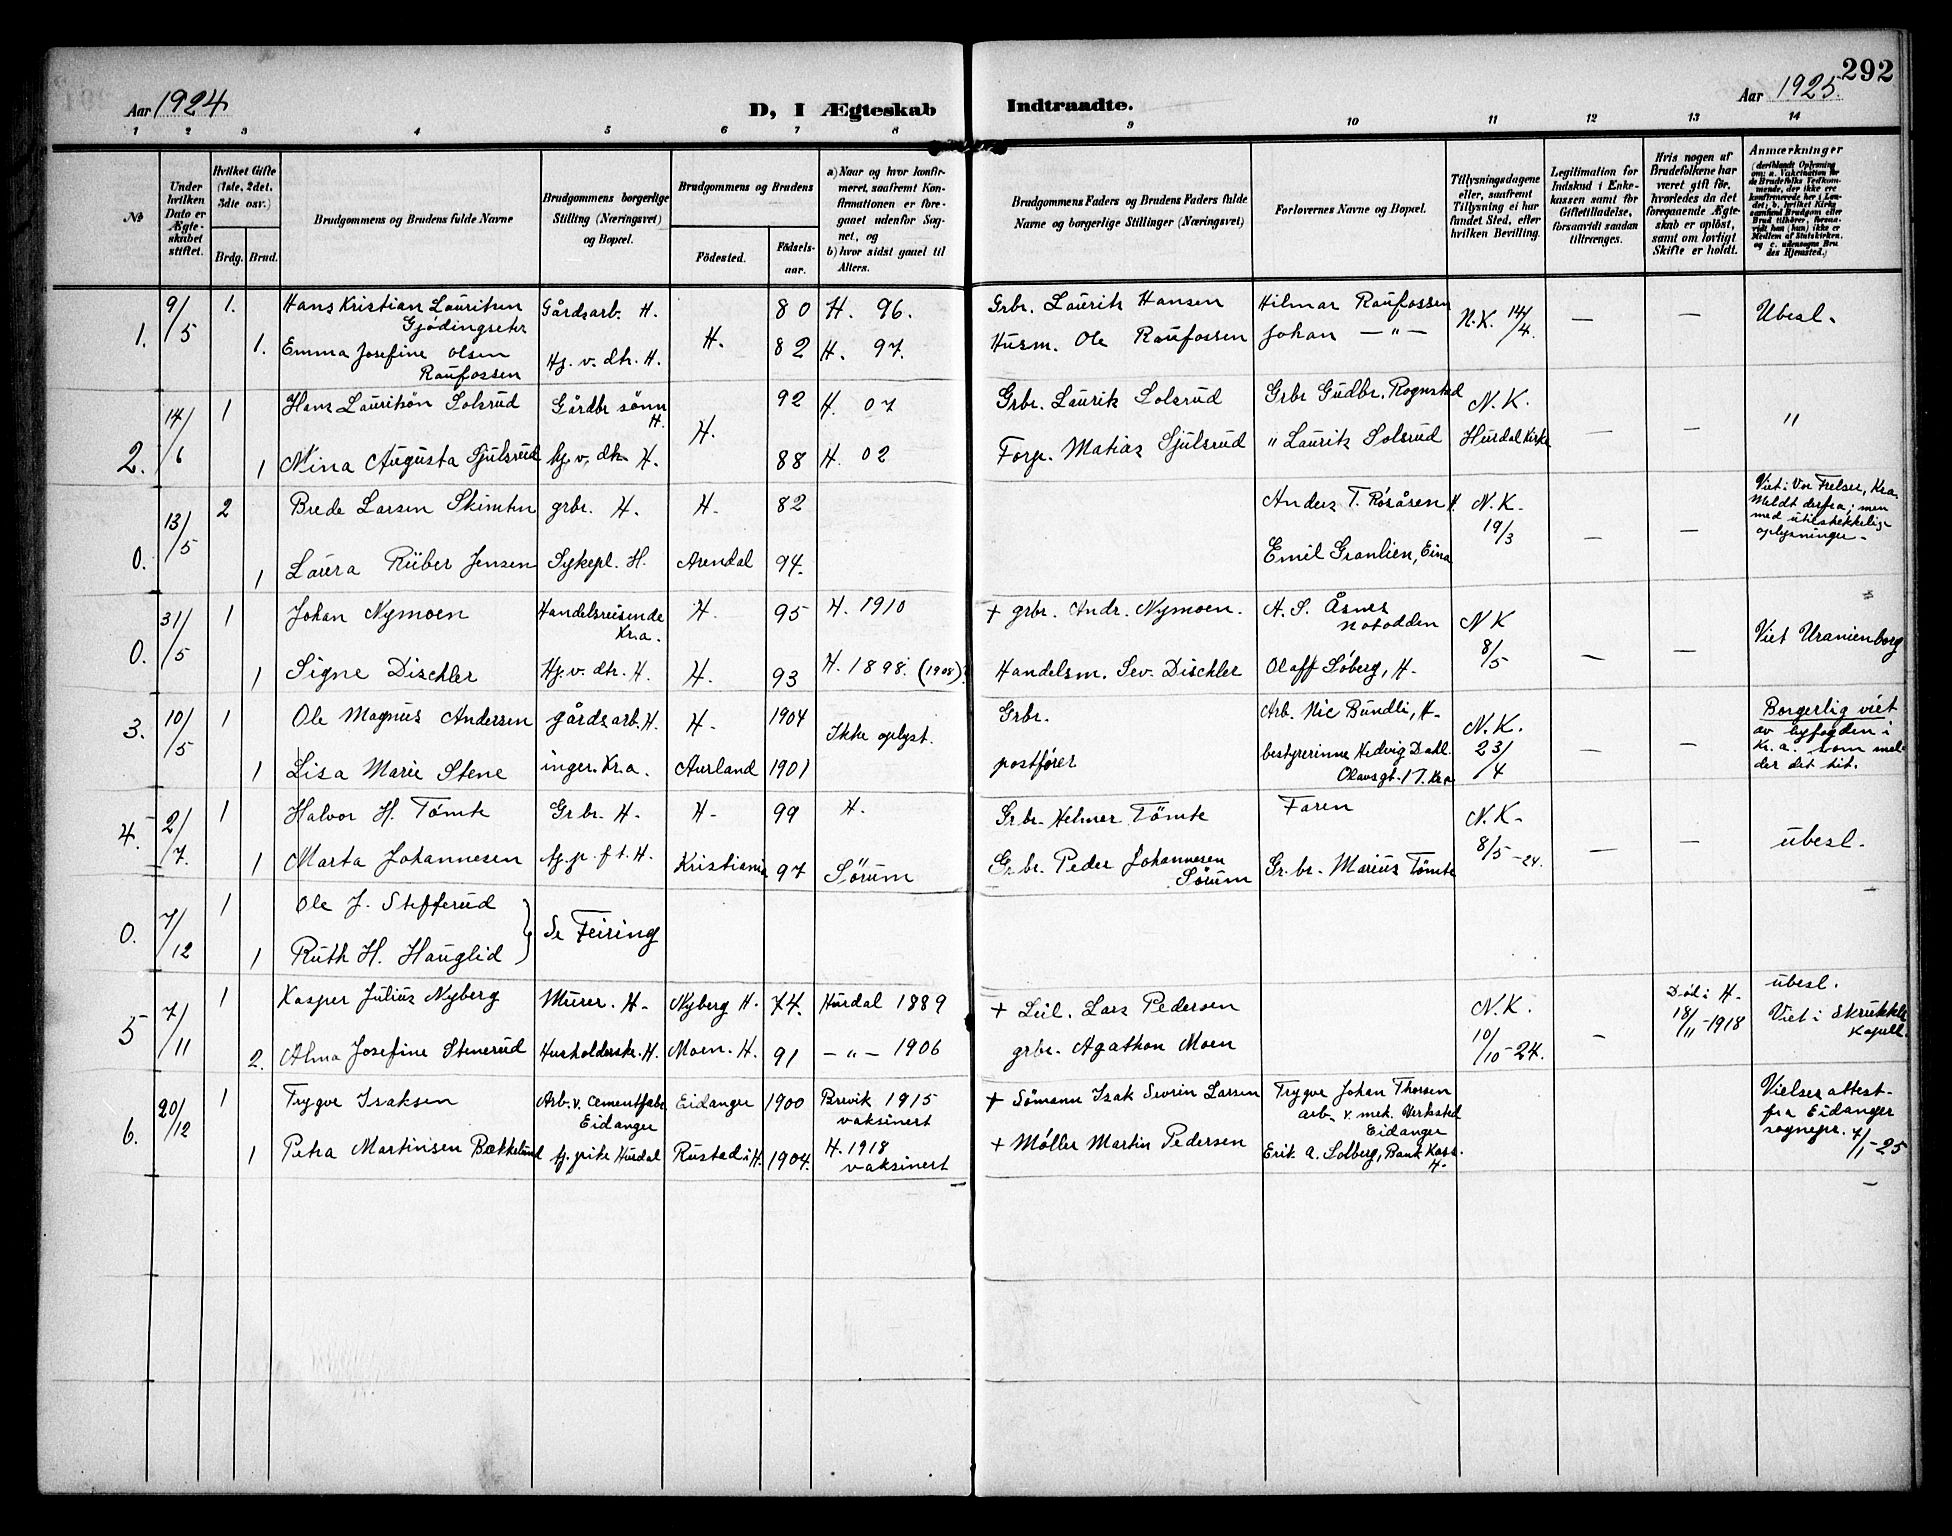 292
Aar 1924
D, I Ægteskab Indtraadte.
Aar 1925.
1 2 3 4 5 6 7 8 9 10 11 12 13 14
№
Under hvilken Dato er Ægteskabet stiftet.
Hvilket Gifte (1ste, 2det, 3die osv.)
Brdg. Brud.
Brudgommens og Brudens fulde Navne
Brudgommens borgerlige Stilling (Næringsvei) og Bopæl.
Brudgommens og Brudens
Fødested.
Fødselsaar.
a) Naar og hvor konfirmeret, saafremt Konfirmationen er foregaaet udenfor Sognet, og
b) hvor sidst gauet til Alters.
Brudgommens Faders og Brudens Faders fulde Navne og borgerlige Stillinger (Næringsvei)
Forlovernes Navne og Bopæl.
Tillysningsdagene eller, saafremt Tillysning ei har fundet Sted, efter hvilken Bevilling.
Legitimation for Indskud i Enkekassen samt for Giftetilladelse, forsaavidt saadan tiltrænges.
Hvis nogen af Brudefolkene har været gift før, hvorledes da det foregaaende Ægteskab er opløst, samt om lovligt Skifte er holdt.
Anmærkninger
(deriblandt Oplysning om: a. Vakcination for de Brudefolks Vedkommende, der ikke ere konfirmerede her i Landet; b. hvilket Kirkesamfund Brudgom eller Brud tilhører, forsaavidt han (hun) ikke er Medlem af Statskirken, og c. udensogns Brudes Hjemsted.)
1. 9/5 1. Hans Kristian Lauritsen Gjödingseter Gårdsarb. H. 80 H. 96. Grbr. Laurits Hansen Hilmar Raufossen N.K. 14/4. — — Ubesl.
1. Emma Josefine Olsen Raufossen Hj. v. dtr. H. H. 82 H. 97. Husm. Ole Raufossen Johan — " —
2. 14/6 1 Hans Lauritsön Solsrud Gårdbr sönn H. 92 H. 07 Grbr. Laurits Solsrud Grbr Gudbr. Rognstad N.K. Hurdal Kirke — — "
1 Nina Augusta Sjulsrud hj. v. dtr H. H. 88 H 02 Forp. Matias Sjulsrud " Laurits Solsrud
0. 13/5 2 Brede Larsen Skimten grbr. H. H. 82 Anders T. Röråsen H. N.K. 19/3 — — Viet i Vor Frelser, Kra. Meldt derfra; men med utilstrekkelig oplysninger.
1 Laura Rüber Jensen Sykepl. H. Arendal 94. Emil Granlien, Eina
0. 31/5 1 Johan Nymoen Handelsreisende Kr.a. H. 95 H. 1910 + grbr. Andr. Nymoen. A. S. Åsnes Notodden N K 8/5 — — Viet Uranienborg
1 Signe Dischler Hj. v. dtr. H. H. 93 H. 1898. (1908)? Handelsm. Sev. Dischler Olaff Söberg, H.
3. 10/5 1 Ole Magnus Andersen gårdsarb. H. H. 1904 Ikke oplyst. Grbr. Arb. Nic Bundli, H. N.K. 23/4 — — Borgerlig viet av byfogden i Kr.a. som melder det hit.
1 Lisa Marie Stene inger. Kr.a. Aurland 1901 postförer bestyrerinne Hedvig Dahl Olavsgt. 17. Kr.a
4. 2/7. 1 Halvor H. Tömte Gr br. H. H. 99 H. Gr br. Helmer Tömte Faren N.K. 8/5 - 24. — — ubesl.
1 Marta Johannesen hj. p. f t. H. Kristiania 97 Sörum Gr. br. Peder Johannesen Sörum Gr. br. Marius Tömte
0. 7/12 1 Ole J. Stefferud } Se Feiring
1 Ruth H. Hauglid
5 7/11 1 Kasper Julius Nyberg Murer. H. Nyberg H. 74. Hurdal 1889 + Leil. Lars Pedersen N.K. 10/10-24. — Död i H. 18/11-1918 ubesl. Viet i Skrukkeli Kapell.
2. Alma Josefine Stenerud Husholderske. H. Moen. H. 91 — " — 1906 grbr. Agathon Moen
6. 20/12 1 Trygve Isaksen Arb. v. Cementfabr. Eidanger Eidanger 1900 Brevik 1915 vaksinert + Sömann Isak Sevrin Larsen Trygve Johan Thorsen arb. v. mek. Verksted Eidanger Vielses attest fra Eidanger sognepr. 7/1-25
1 Petra Martinsen Bækkelund hj. pike Hurdal Rustad i H. 1904. H. 1918 vaksinert + Møller Martin Pedersen Erik A. Solberg, Bank Kass. H.